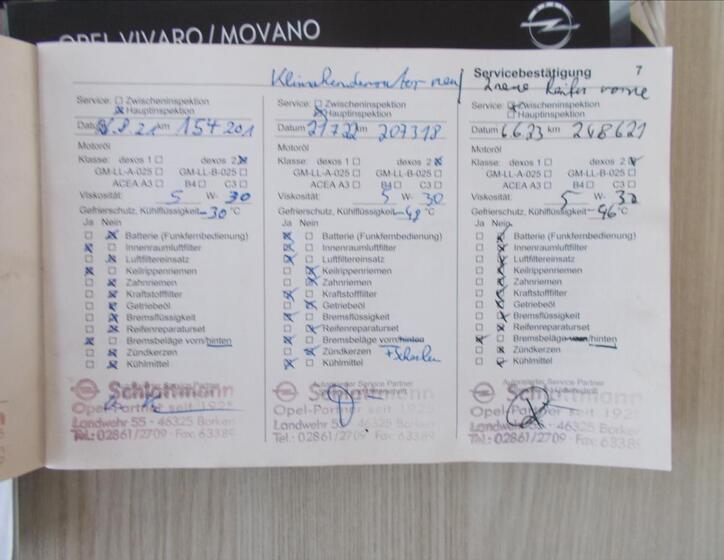 OPEL VIVARO / MOVANO
Servicebestätigung 7
Klimakondensator neu
2 neue Reifen vorne
Service: ☐ Zwischeninspektion
☒ Hauptinspektion
Datum 8.21 km 154 201
Motoröl
Klasse: dexos 1 ☐ dexos 2 ☒
GM-LL-A-025 ☐ GM-LL-B-025 ☐
ACEA A3 ☐ B4 ☐ C3 ☐
Viskosität: 5 W- 30
Gefrierschutz, Kühlflüssigkeit -30 °C
Ja Nein
☐ ☒ Batterie (Funkfernbedienung)
☒ ☐ Innenraumluftfilter
☐ ☒ Luftfiltereinsatz
☒ ☐ Keilrippenriemen
☐ ☒ Zahnriemen
☐ ☒ Kraftstofffilter
☐ ☒ Getriebeöl
☐ ☒ Bremsflüssigkeit
☐ ☒ Reifenreparaturset
☒ ☐ Bremsbeläge vorn/hinten
☐ ☒ Zündkerzen
☐ ☒ Kühlmittel
Autorisierter Service Partner
Schlattmann
Opel-Partner seit 192
Landwehr 55 - 46325 Borken
Tel.: 02861/2709 · Fax: 63389
Service: ☐ Zwischeninspektion
☒ Hauptinspektion
Datum 21.7.22 km 207318
Motoröl
Klasse: dexos 1 ☐ dexos 2 ☒
GM-LL-A-025 ☐ GM-LL-B-025 ☐
ACEA A3 ☐ B4 ☐ C3 ☐
Viskosität: 5 W- 30
Gefrierschutz, Kühlflüssigkeit °C
Ja Nein
☒ ☐ Batterie (Funkfernbedienung)
☒ ☐ Innenraumluftfilter
☒ ☐ Luftfiltereinsatz
☐ ☒ Keilrippenriemen
☐ ☒ Zahnriemen
☒ ☐ Kraftstofffilter
☐ ☒ Getriebeöl
☒ ☐ Bremsflüssigkeit
☐ ☒ Reifenreparaturset
☒ ☐ Bremsbeläge vorn/hinten
☐ ☒ Zündkerzen + Scheiben
☒ ☐ Kühlmittel
Autorisierter Service Partner
Schlattmann
Opel-Partner seit 192
Landwehr 55 - 46325 Borken
Tel.: 02861/2709 · Fax: 63389
Service: ☒ Zwischeninspektion
☐ Hauptinspektion
Datum 6.6.23 km 248621
Motoröl
Klasse: dexos 1 ☐ dexos 2 ☒
GM-LL-A-025 ☐ GM-LL-B-025 ☐
ACEA A3 ☐ B4 ☐ C3 ☐
Viskosität: 5 W- 30
Gefrierschutz, Kühlflüssigkeit -46 °C
Ja Nein
☐ ☒ Batterie (Funkfernbedienung)
☐ ☒ Innenraumluftfilter
☐ ☒ Luftfiltereinsatz
☐ ☒ Keilrippenriemen
☐ ☒ Zahnriemen
☐ ☒ Kraftstofffilter
☐ ☒ Getriebeöl
☐ ☒ Bremsflüssigkeit
☐ ☒ Reifenreparaturset
☒ ☐ Bremsbeläge vorn/hinten
☐ ☒ Zündkerzen
☐ ☒ Kühlmittel
Autorisierter Service Partner
Schlattmann
Opel-Partner seit 192
Landwehr 55 - 46325 Borken
Tel.: 02861/2709 · Fax: 63389